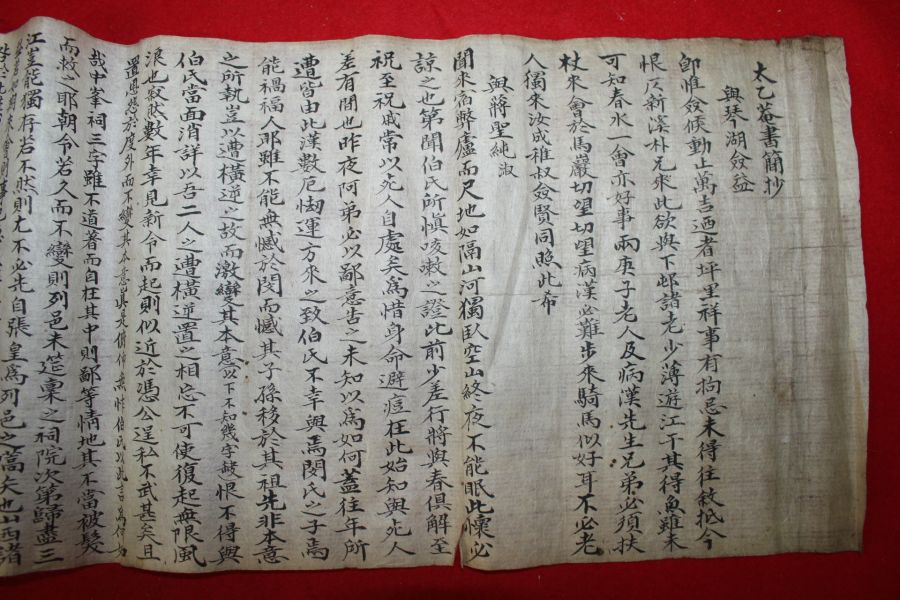 太乙菴書簡抄
與琴湖僉益
卽惟僉候動止萬吉迺者坪里祥事有拘忌未得往敘抵今
恨仄新溪朴兄來此欲與下邨諸老少薄遊江干其得魚雖未
可知春水一會亦好事兩庚子老人及病漢先生兄弟必須扶
杖來會於馬巖切望切望病漢必難步來騎馬似好耳不必老
人獨來汝成稚叔僉賢同照此希
與蔣聖純淑
聞來寓弊廬而尺地如隔山河獨臥空山終夜不能眠此懷必
諒之也第聞伯氏所愼咳嗽之證比前少差行將與春俱解至
祝至祝戚常以死人自處矣爲惜身命避痘在此始知與死人
差有間也昨夜阿弟必以鄙意告之未知以爲如何蓋往年所
遭皆由此漢數厄㤼運方來之致伯氏不幸與焉閔氏之子焉
能禍福人耶雖不能無憾於閔而憾其子孫移於其祖先非本意
之所執豈以遭橫逆之故而激變其本意以下不知幾字缺恨不得與
伯氏當面消詳以吾二人之遭橫逆置之相忘不可使復起無限風
浪也寂然數年幸見新令而起則似近於憑公逞私不武甚矣且
置恩怨於度外而不變其本意眞是俯仰無怍伯氏以此言爲何如
哉中峯祠三字雖不道著而自在其中則鄙等情地其不當被髮
而救之耶朝令若久而不變則列邑未筵稟之祠院次第歸盡三
江豈能獨存若不然則尤不必先自張皇爲列邑之嚆矢也山西諸